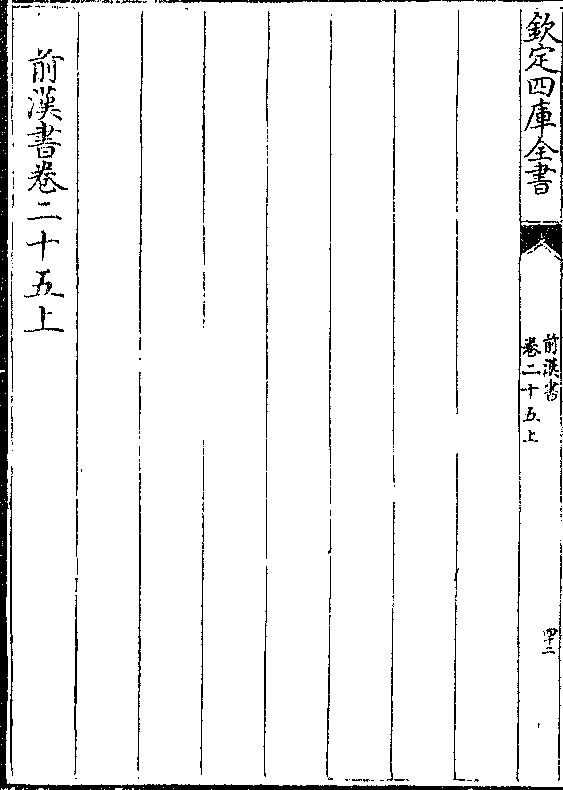 欽定四庫全書
前漢書
卷二十五上
四十二
前漢書卷二十五上